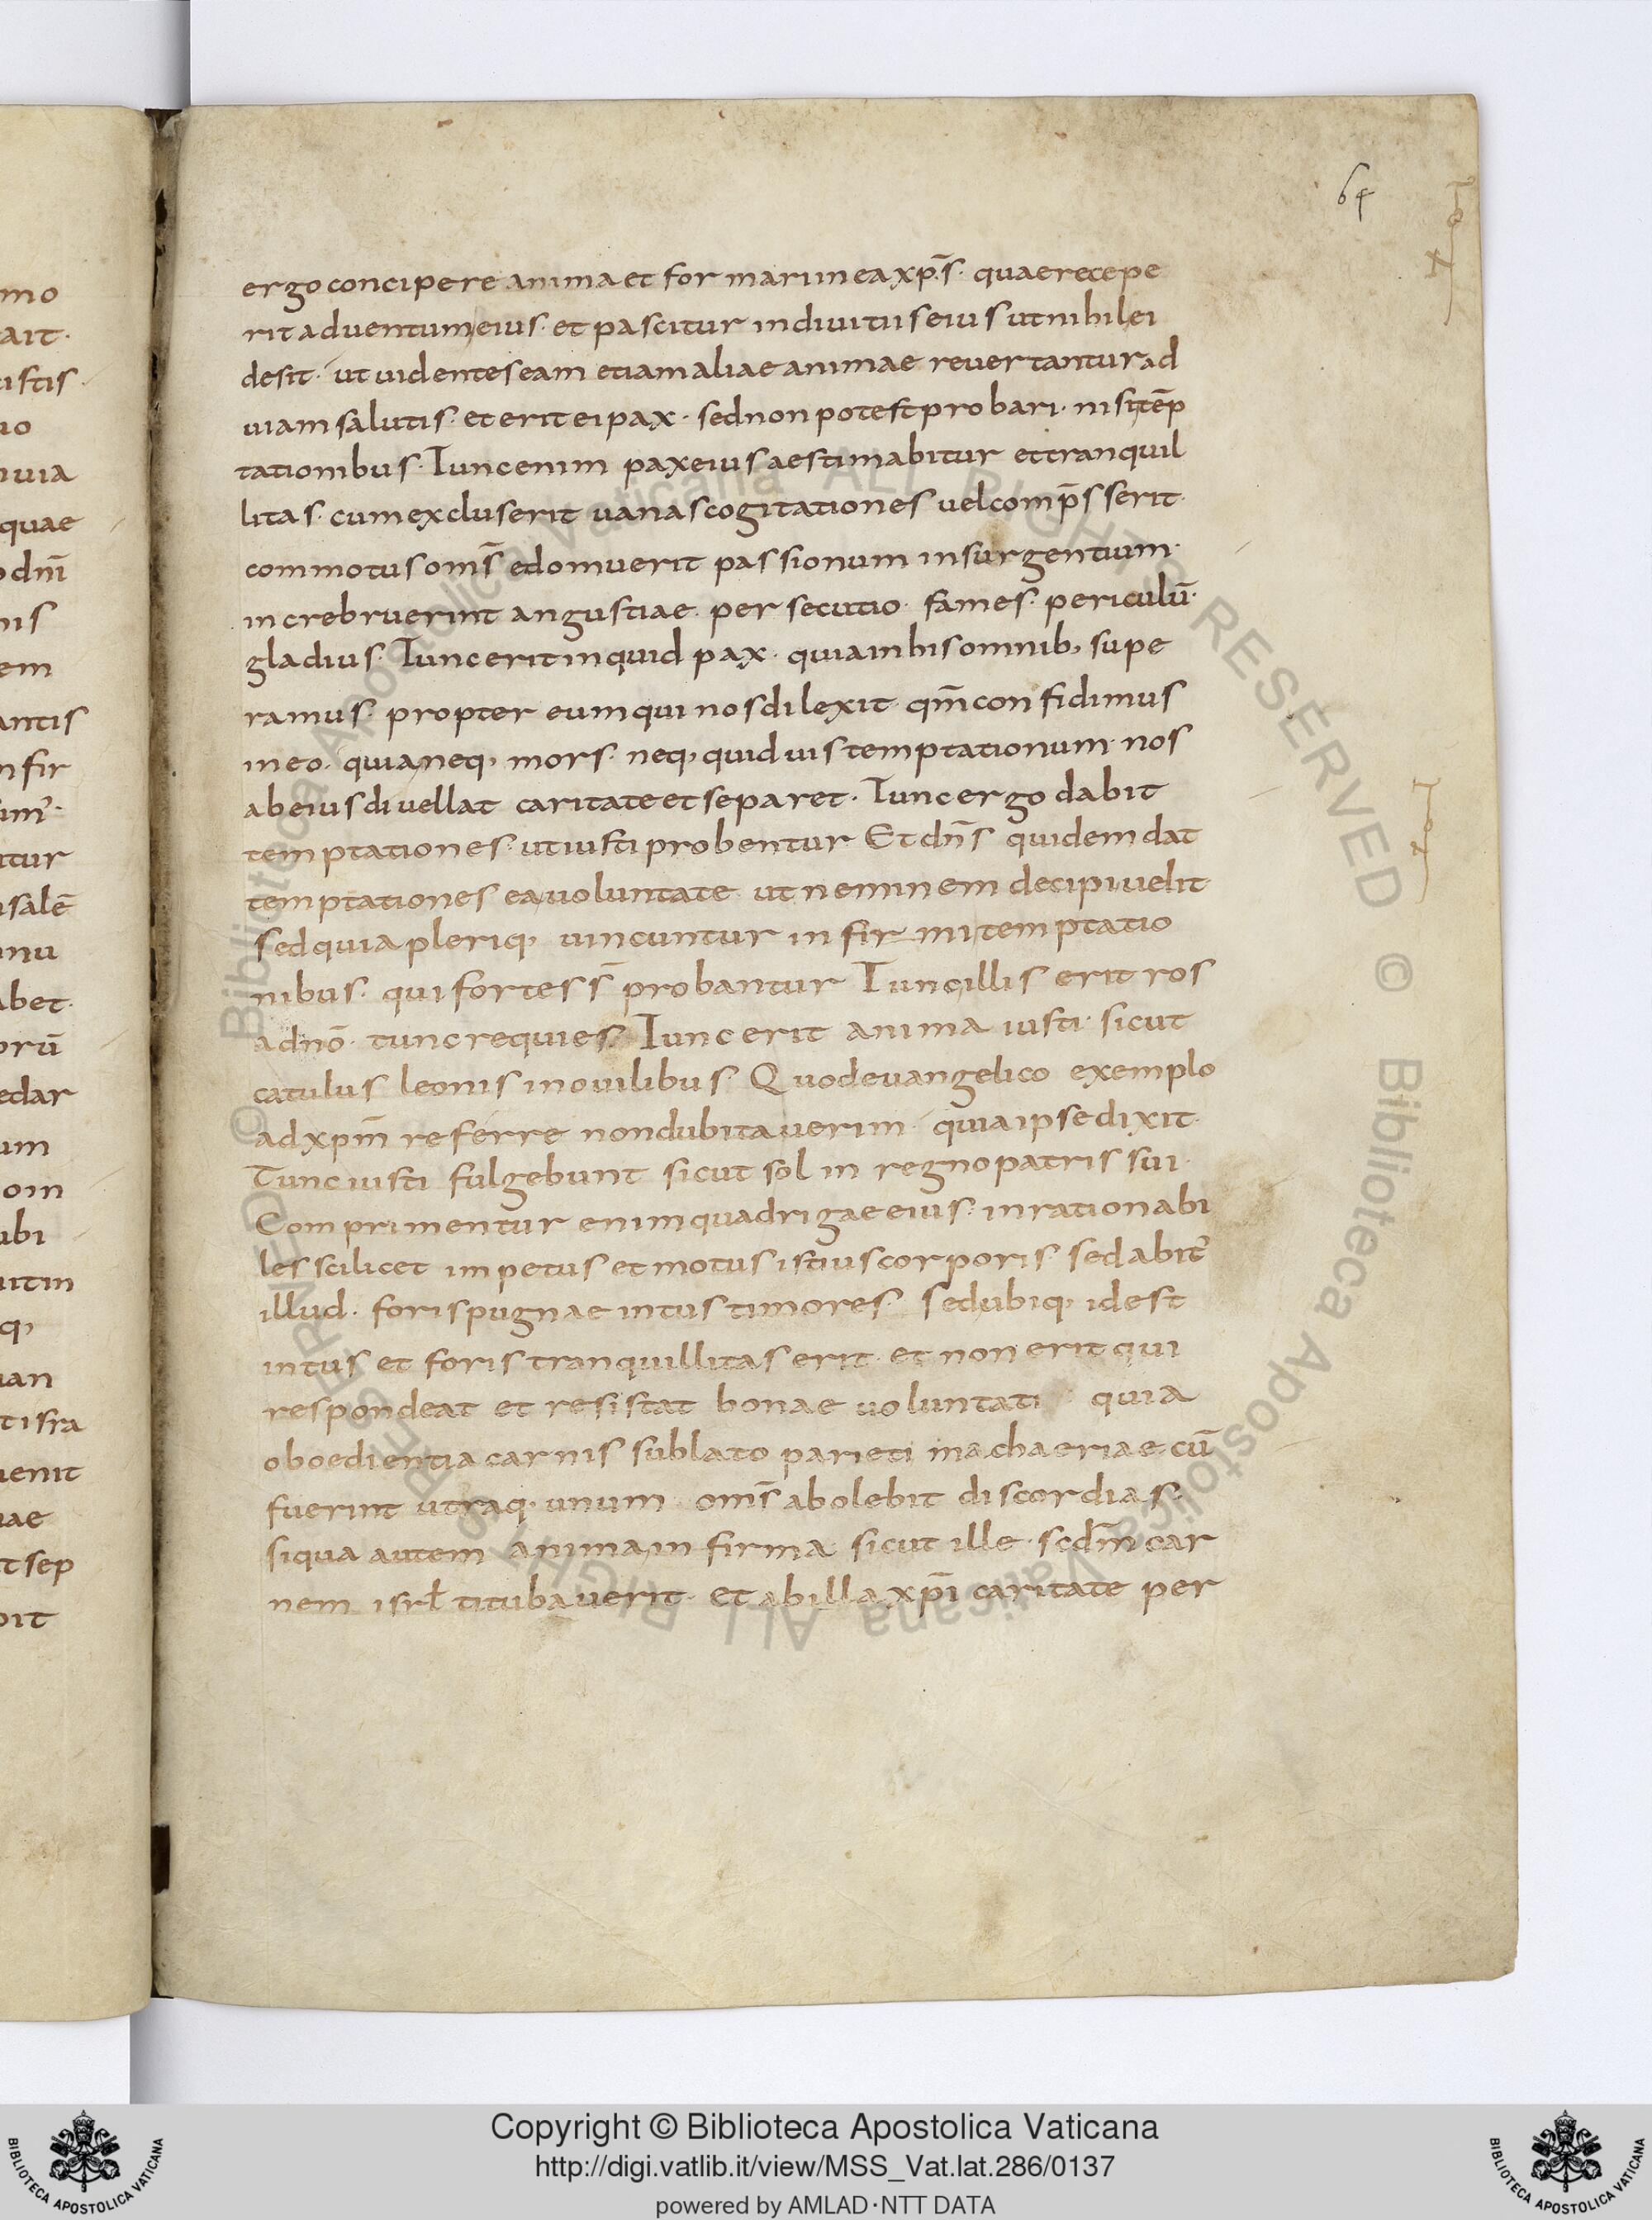 64
mo
ergo concipere anima et formari in ea xp̄s· quae recepe
ait·
rit adventum eius· et pascitur in divitiis eius ut nihil ei
istis·
desit· ut videntes eam etiam aliae animae revertantur ad
uo
uiam salutis· et erit ei pax· sed non potest probari· nisi tēp
uuia
tationibus· Tunc enim pax eius aestimabitur et tranquil
quae
litas· cum excluserit vanas cogitationes vel comp̄sserit·
dn̄i
commotus om̄s edomuerit passionum insurgentium·
nis
increbruerint angustiae· persecutio· fames· periculū·
em
gladius· Tunc erit inquid pax· quia in his omnib; supe
antis
ramus· propter eum qui nos dilexit· qm̄ confidimus
nfir
in eo· quia neq; mors· neq; quid vis temptationum· nos
ab eius divellat caritate et separet· Tunc ergo dabit
itur
temptationes· ut iusti probentur Et dn̄s quidem dat
salē
temptationes ea voluntate· ut neminem decipi velit·
nu
sed quia pleriq; vincuntur infirmi temptatio
abet·
nibus· qui fortes s̄ probantur Tunc illis erit ros
orū
a dn̄o· tunc requies· Tunc erit anima iusti· sicut
edar
catulus leonis in ovilibus· Quod evangelico exemplo
um
ad xpm̄ referre non dubitaverim· quia ipse dixit·
om
Tunc iusti fulgebunt sicut sol in regno patris sui·
ubi
Comprimentur enim quadrigae eius· inrationabi
uitin
les scilicet impetus et motus istius corporis· sedabit̉
q;
illud· foris pugnae intus timores· sed ubiq; id est
uan
intus et foris tranquillitas erit· et non erit qui
t isra
respondeat et resistat bonae voluntati quia
uenit
oboedientia carnis sublato parieti machaeriae· cū
uae
fuerint utraq; unum· om̄s abolebit discordias·
t sep
siqua autem anima infirma sicut ille· scd̄m car
bit
nem isrl̄ titubaverit· et ab illa xp̄i caritate per
© Biblioteca Apostolica Vaticana ALL RIGHTS RESERVED © Biblioteca Apostolica Vaticana ALL RIGHTS RESERVED
Copyright © Biblioteca Apostolica Vaticana
http://digi.vatlib.it/view/MSS_Vat.lat.286/0137
powered by AMLAD·NTT DATA
BIBLIOTECA APOSTOLICA VATICANA
BIBLIOTECA APOSTOLICA VATICANA